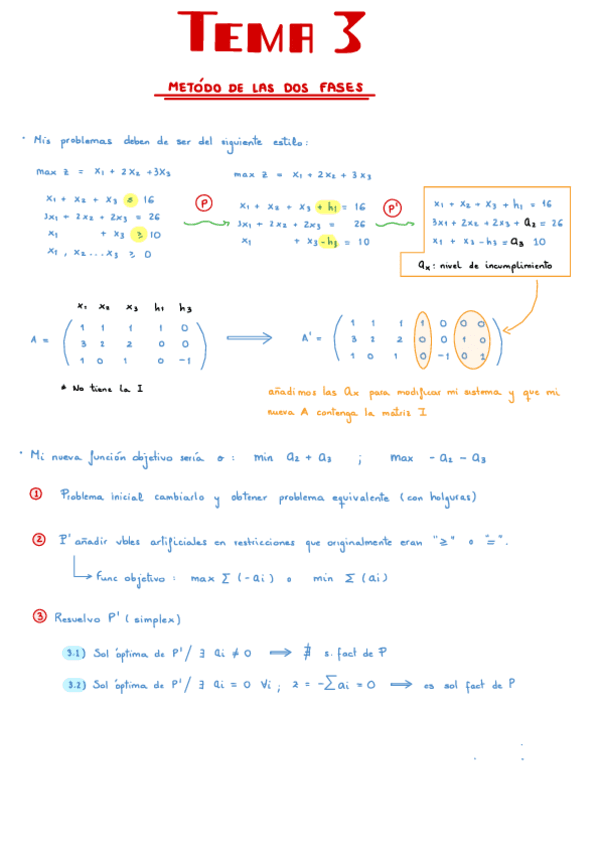 TEMA 3
METÓDO DE LAS DOS FASES
· Mis problemas deben de ser del siguiente estilo:
max z = x₁ + 2x₂ + 3x₃
x₁ + x₂ + x₃ ≤ 16
3x₁ + 2x₂ + 2x₃ = 26
x₁ + x₃ ≥ 10
x₁, x₂...x₃ ≥ 0
P
max z = x₁ + 2x₂ + 3x₃
x₁ + x₂ + x₃ + h₁ = 16
3x₁ + 2x₂ + 2x₃ = 26
x₁ + x₃ - h₃ = 10
P'
x₁ + x₂ + x₃ + h₁ = 16
3x₁ + 2x₂ + 2x₃ + a₂ = 26
x₁ + x₃ - h₃ = a₃ 10
aₓ: nivel de incumplimiento
x₁ x₂ x₃ h₁ h₃
A =
1 1 1 1 0
3 2 2 0 0
1 0 1 0 -1
* No tiene la I
A' =
1 1 1 1 0 0 0
3 2 2 0 0 1 0
1 0 1 0 -1 0 1
añadimos las aₓ para modificar mi sistema y que mi
nueva A contenga la matriz I
· Mi nueva función objetivo sería o: min a₂ + a₃ ; max - a₂ - a₃
1 Problema inicial cambiarlo y obtener problema equivalente (con holguras)
2 P' añadir vbles artificiales en restricciones que originalmente eran "≥" o "=".
Func objetivo: max ∑ (-ai) o min ∑ (ai)
3 Resuelvo P' (simplex)
3.1) Sol óptima de P' / ∃ ai ≠ 0 ⟹ ∄ s. fact de P
3.2) Sol óptima de P' / ∃ ai = 0 ∀i ; z = -∑ai = 0 ⟹ es sol fact de P